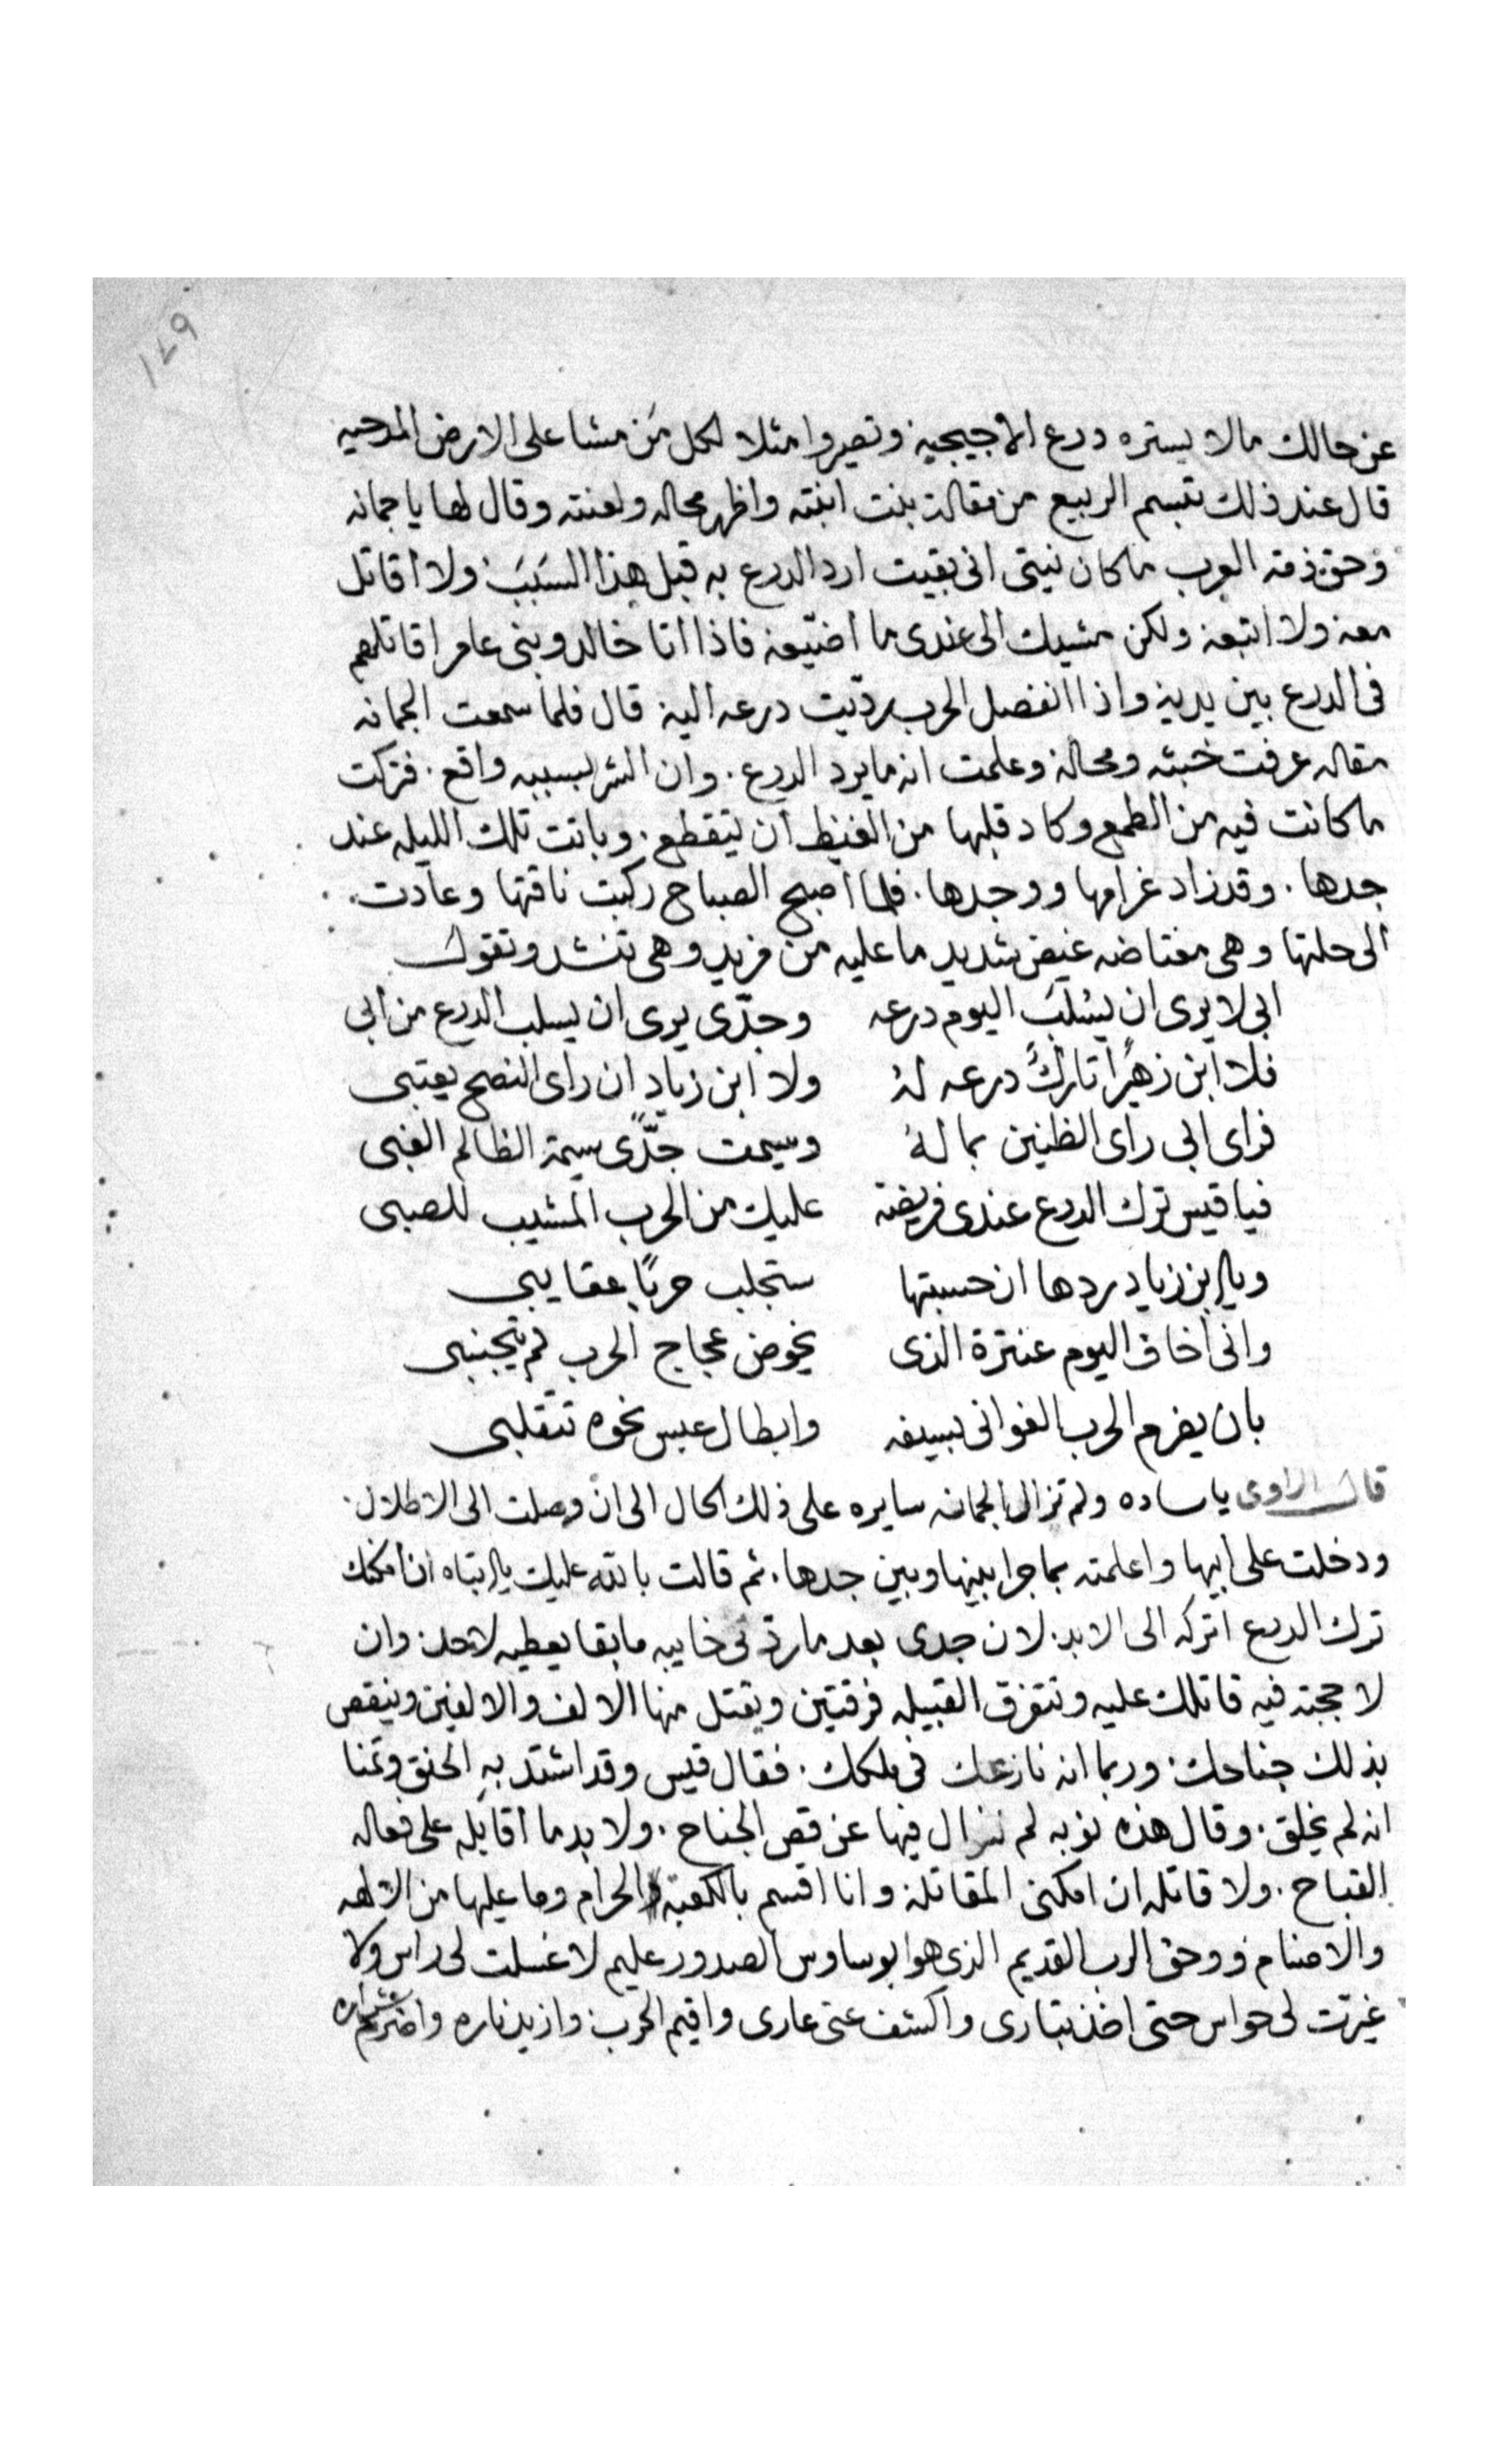 ١٤٩
عن حالك مالا يستره درع الاجيجيه وتصيروا مثلا لكل مَن مشا على الارض المدحيه
قال عند ذلك تبسم الربيع من مقالة بنت ابنته واظهر محاله ولعنته وقال لها يا جمانه
وحق ذمة العرب ما كان نيتى انى بقيت ارد الدرع به قبل هذا السَبَبَ ولا اقاتل
معه ولا اتبعه ولكن مشيك الى عندى ما اضيّعه فاذا اتا خالد وبنى عامر اقاتلهم
فى الدرع بين يديه واذا انفصل الحرب ردّيت درعه اليه قال فلما سمعت الجمانه
مقاله عرفت خبثه ومحاله وعلمت انه ما يرد الدرع . وان الشر بسببه واقع . فتركت
ما كانت فيه من الطمع وكاد قلبها من الغيظ ان يتقطع . وباتت تلك الليله عند
جدها . وقد زاد غرامها ووجدها . فلما اصبح الصباح ركبت ناقتها وعادت .
الى حلتها وهى مغتاضه غيض شديد ما عليه من مزيد وهى تنشد وتقول
ابى لا يرى ان يسْلبَ اليوم درعه وجدّى يرى ان يسلب الدرع من ابى
فلا ابن زهيراً تاركٌ درعه لهُ ولا ابن زياد ان راى النصح يعتبى
فراى ابى راى الظنين بما لهُ وسيمت جدّى سيمة الظالم الغبى
فيا قيس ترك الدرع عندى فريضة عليك من الحرب المشيب للصبى
ويا ابن زياد ردها ان حسبتها ستجلب حربًا عقايبى
وانى اخاف اليوم عنترة الذى يخوض عجاج الحرب لم يتجنبى
بان يضرم الحرب الغوانى بسيفه وابطال عبس نحوه تتقلبى
قال الراوى يا ساده ولم تزال الجمانه سايره على ذلك الحال الى ان وصلت الى الاطلال .
ودخلت على ابيها واعلمته بما جرا بينها وبين جدها . ثم قالت بالله عليك يا ابتاه ان امكنك
ترك الدرع اتركه الى الابد . لان جدى بعد ما ردّنى خايبه ما بقا يعطيه لاحد . وان
لاججته فيه قاتلك عليه وتتفرق القبيله فرقتين ويقتل منها الالف والالفين وينقص
بذلك جناحك . وربما انه نازعك فى ملكك . فقال قيس وقد اشتد بهِ الحنق وتمنا
انه لم يخلق . وقال هذه نوبه لم نزال فيها عن قص الجناح . ولا بد ما اقابله على فعاله
القباح . ولا قاتله ان امكنى المقاتله وانا اقسم بالكعبة الحرام وما عليها من الالهه
والاصنام ووحق الرب القديم الذى هو ابوساوس الصدور عليم لا غسلت لى راس ولا
غيرّت لى حواس حتى اخذ بتارى واكشف عنى عارى واقيم الحرب وازيد ناره واضرم شراره